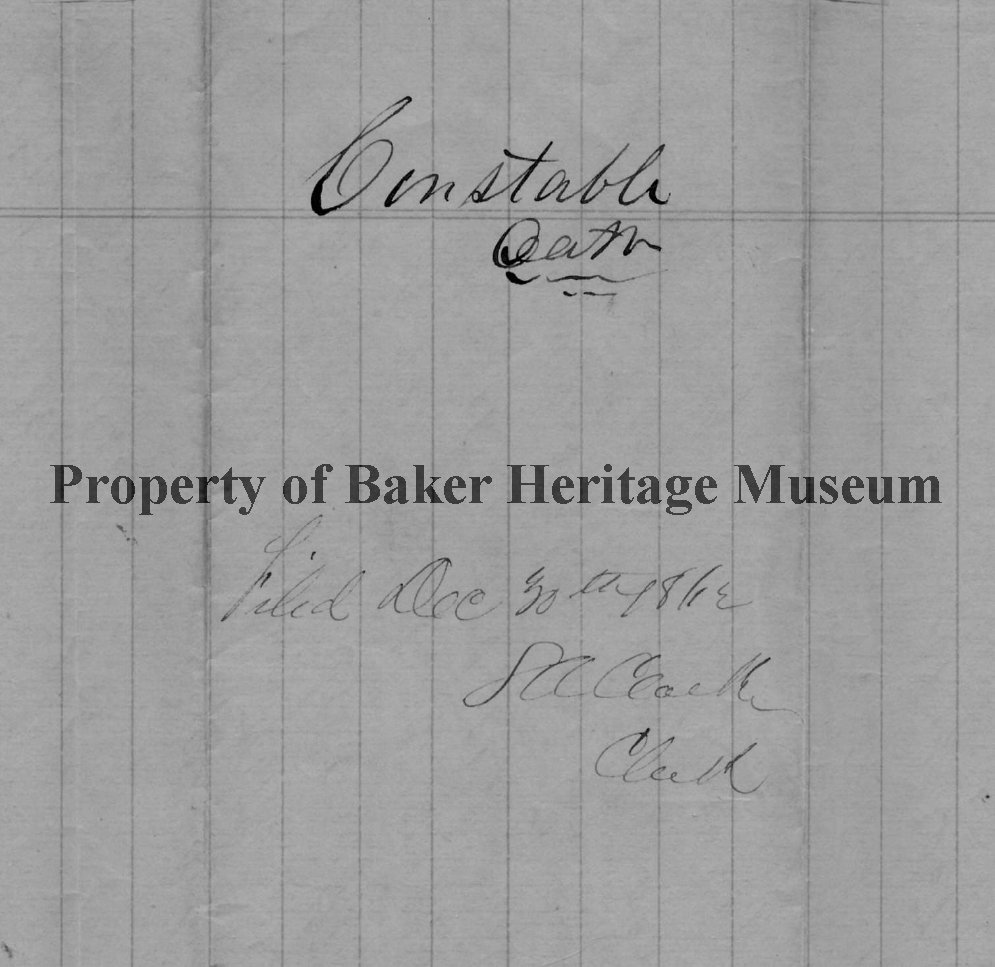 Constable
Oath
Property of Baker Heritage Museum
Filed Dec 30th 1862
S A Clarke
Clerk